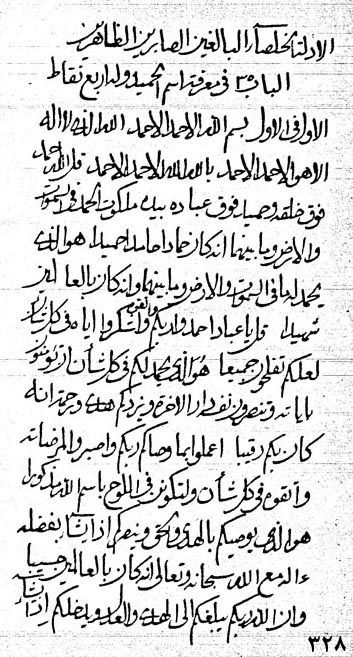 الادلاء الخلصاء البالغين الصابرين الظاهرين
الباب فى معرفة اسم الحميد وله اربع نقاط
الاولى فى الاول بسم الله الاحمد الاحمد الله الذى لا اله
الا هو الاحمد الاحمد بالله الله الاحمد الاحمد قل الله حمد
فوق خلقه وحميدا فوق عباده بيده ملكوت الحمد فى السموات
والارض وما بينهما انه كان حمادا حامدا حميدا هو الذى
يحمد له ما فى السموات والارض وما بينهما وانه كان بالعالمين
شهيدا قل يا عباد احمدوا ربكم واشكروا اياه فى كل شأن
لعلكم تفلحون جميعا هو الذى يحمدكم فى كل شأن ان تؤمنون
باياته وتنصرون فى دار الاخرة ويزدكم هدى ورحمة انه
كان بكم رقيبا اعملوا بما وصاكم ربكم واصبروا لمرضاته
واتقوه فى كل شأن ولتكونن فى اللوح باسم الله مذكورا
هو الذى يوصيكم بالهدى والحق وينصركم اذا شاء بفضله
ءاله مع الله سبحانه وتعالى انه كان بالعالمين حسيبا
وان الله ربكم يبلغكم الى الهدى والعدل ويفضلكم اذا شاء
٣٢٨